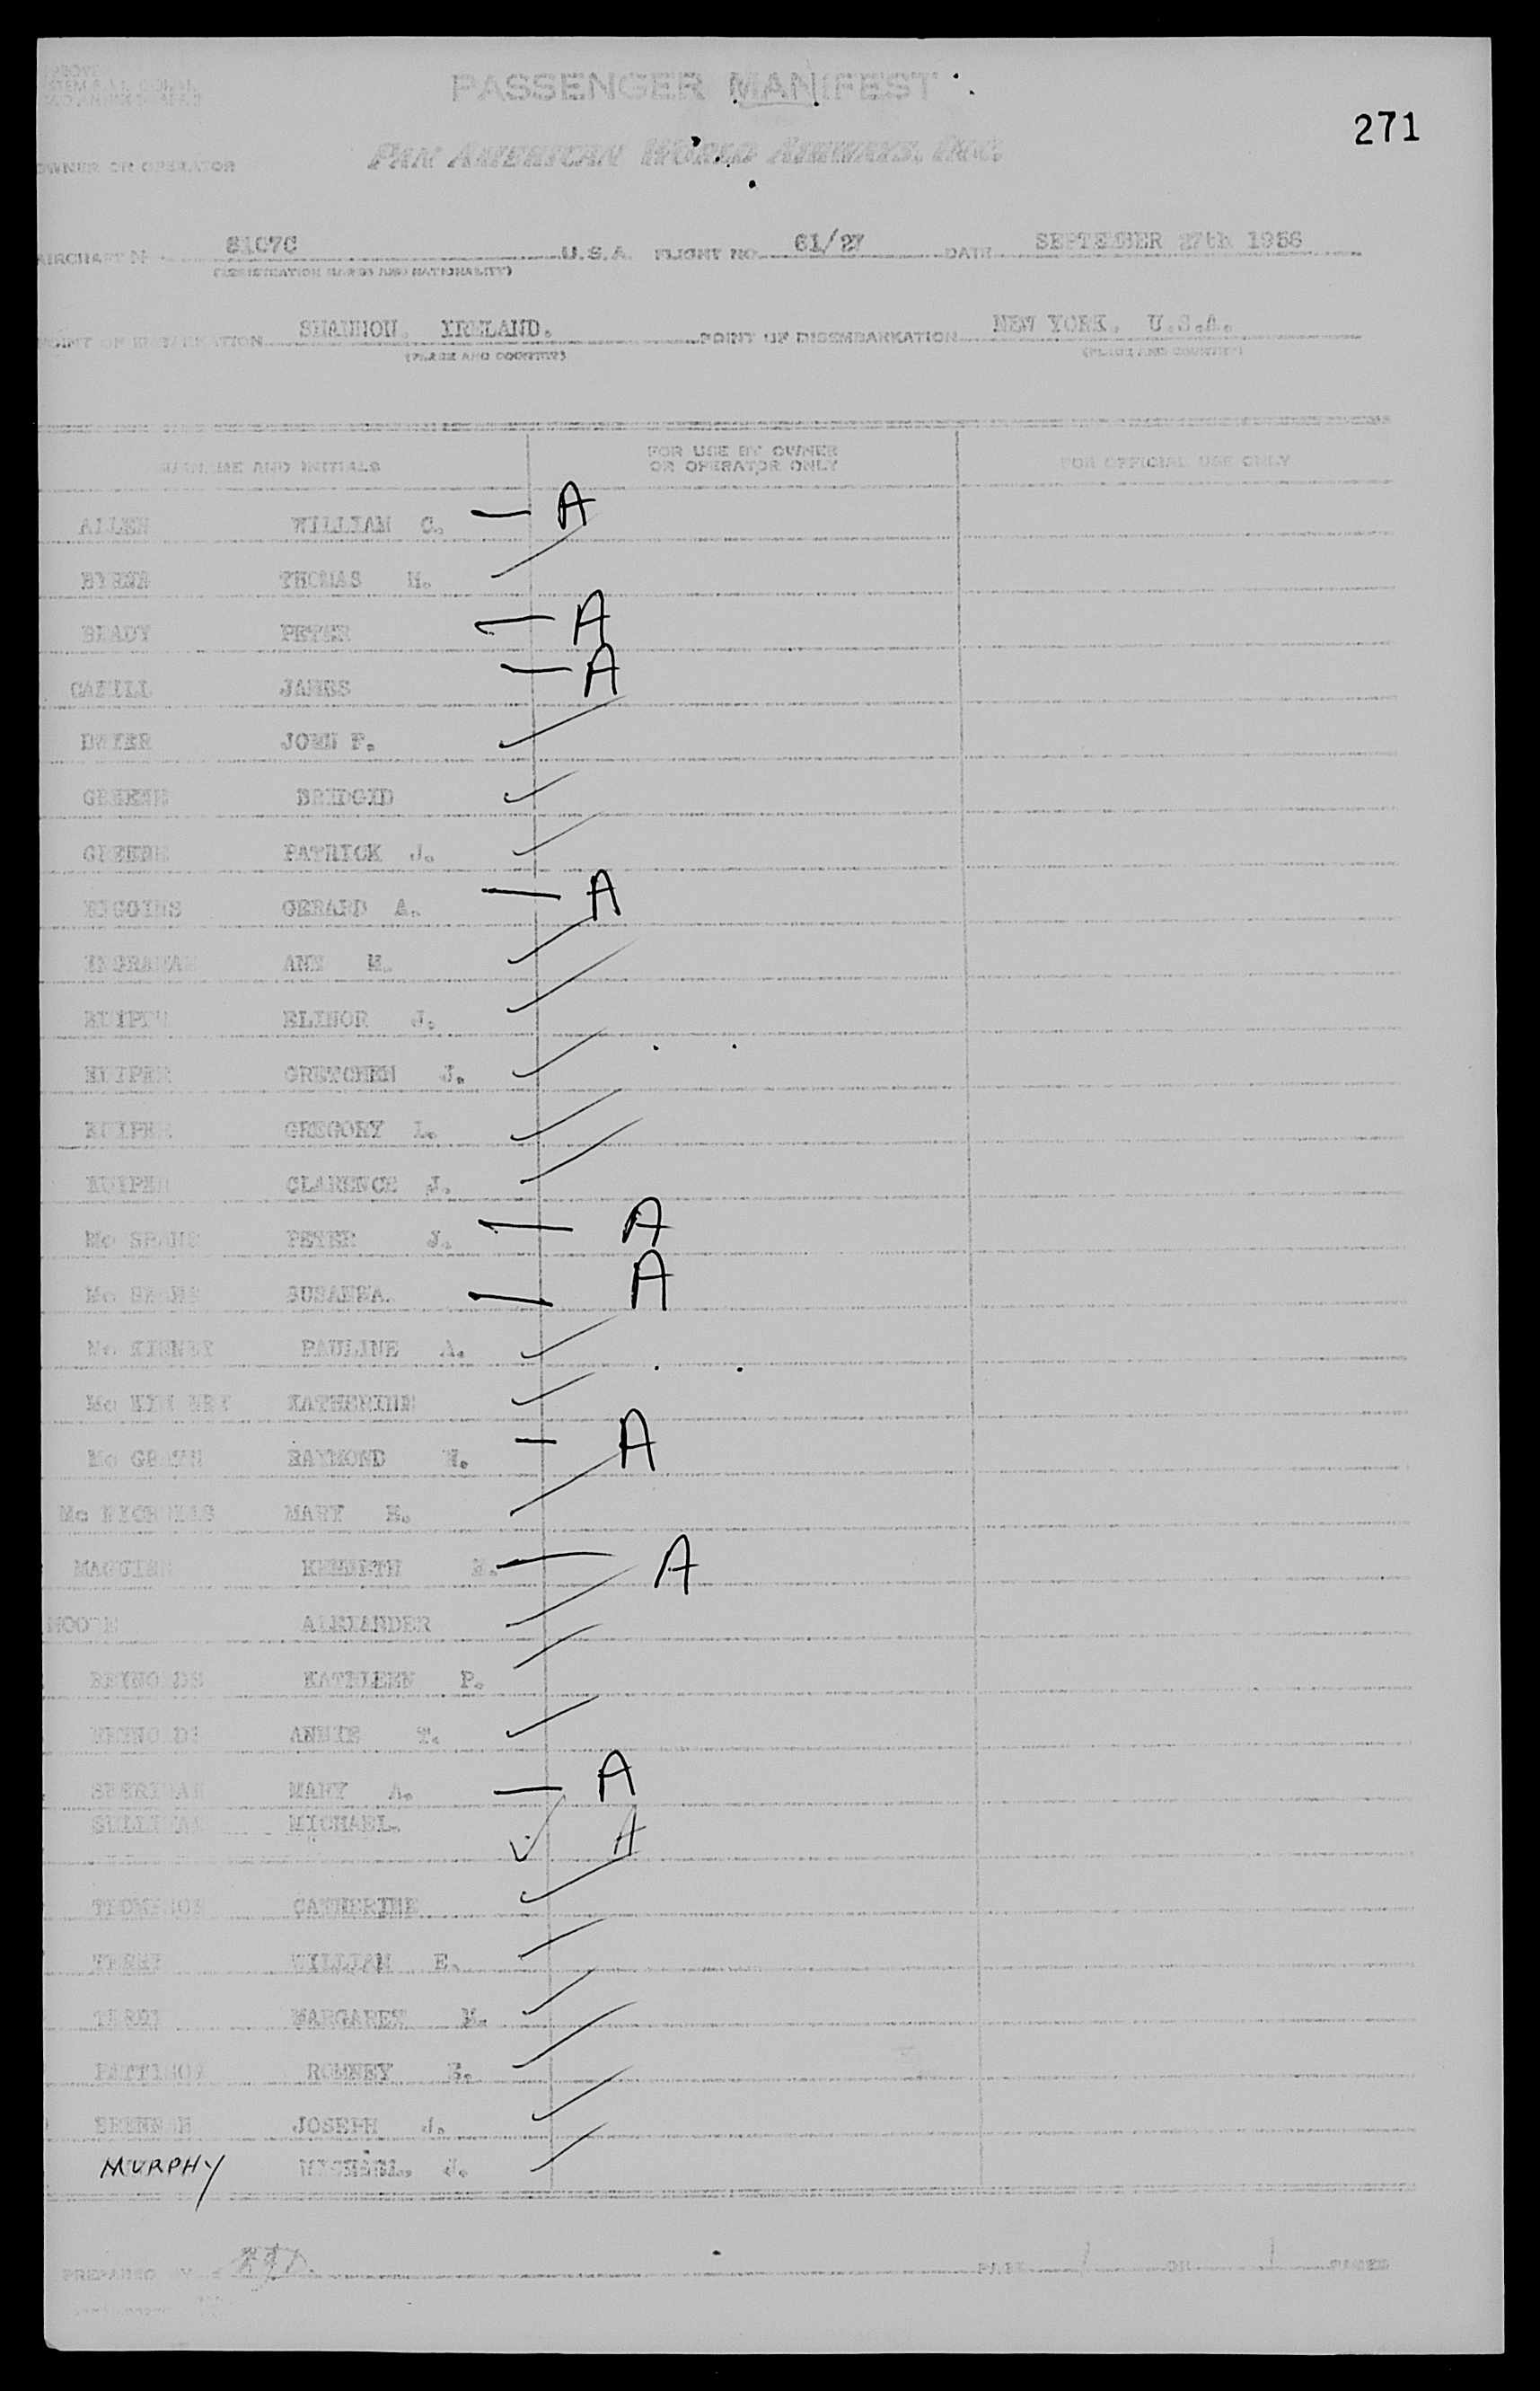 PASSENGER MANIFEST
271
PAN AMERICAN WORLD AIRWAYS, INC.
OWNER OR OPERATOR
AIRCRAFT 8107C U.S.A. FLIGHT NO. 61/27 DATE SEPTEMBER 27th 1956
(REGISTRATION MARKS AND NATIONALITY)
POINT OF EMBARKATION SHANNON, IRELAND. POINT OF DISEMBARKATION NEW YORK, U.S.A.
(PLACE AND COUNTRY) (PLACE AND COUNTRY)
SURNAME AND INITIALS FOR USE BY OWNER OR OPERATOR ONLY FOR OFFICIAL USE ONLY
ALLEN WILLIAM C. — A
THOMAS M.
BRADY PETER — A
CAHILL JAMES — A
DWYER JOHN F.
GREENE BRIDGID
GREENE PATRICK J.
HIGGINS GERARD A. — A
INGRAHAM ANN M.
KUIPER ELINOR J.
KUIPER GRETCHEN J.
KUIPER GREGORY L.
KUIPER CLARENCE J.
Mc PETER J. — A
Mc SUSANNA. — A
Mc KINNEY PAULINE A.
Mc KINNEY KATHERINE
Mc RAYMOND — A
Mc NICHOLAS MARY
KENNETH — A
MOORE ALEXANDER
REYNOLDS KATHLEEN P.
REYNOLDS ANNIE T.
SHERIDAN MARY A. — A
SULLIVAN MICHAEL. A
THOMPSON CATHERINE
TERRY WILLIAM E.
TERRY MARGARET M.
PATTISON ROMNEY
BRENNAN JOSEPH J.
MURPHY MICHAEL. J.
PREPARED BY PAGE 1 OF 1 PAGES